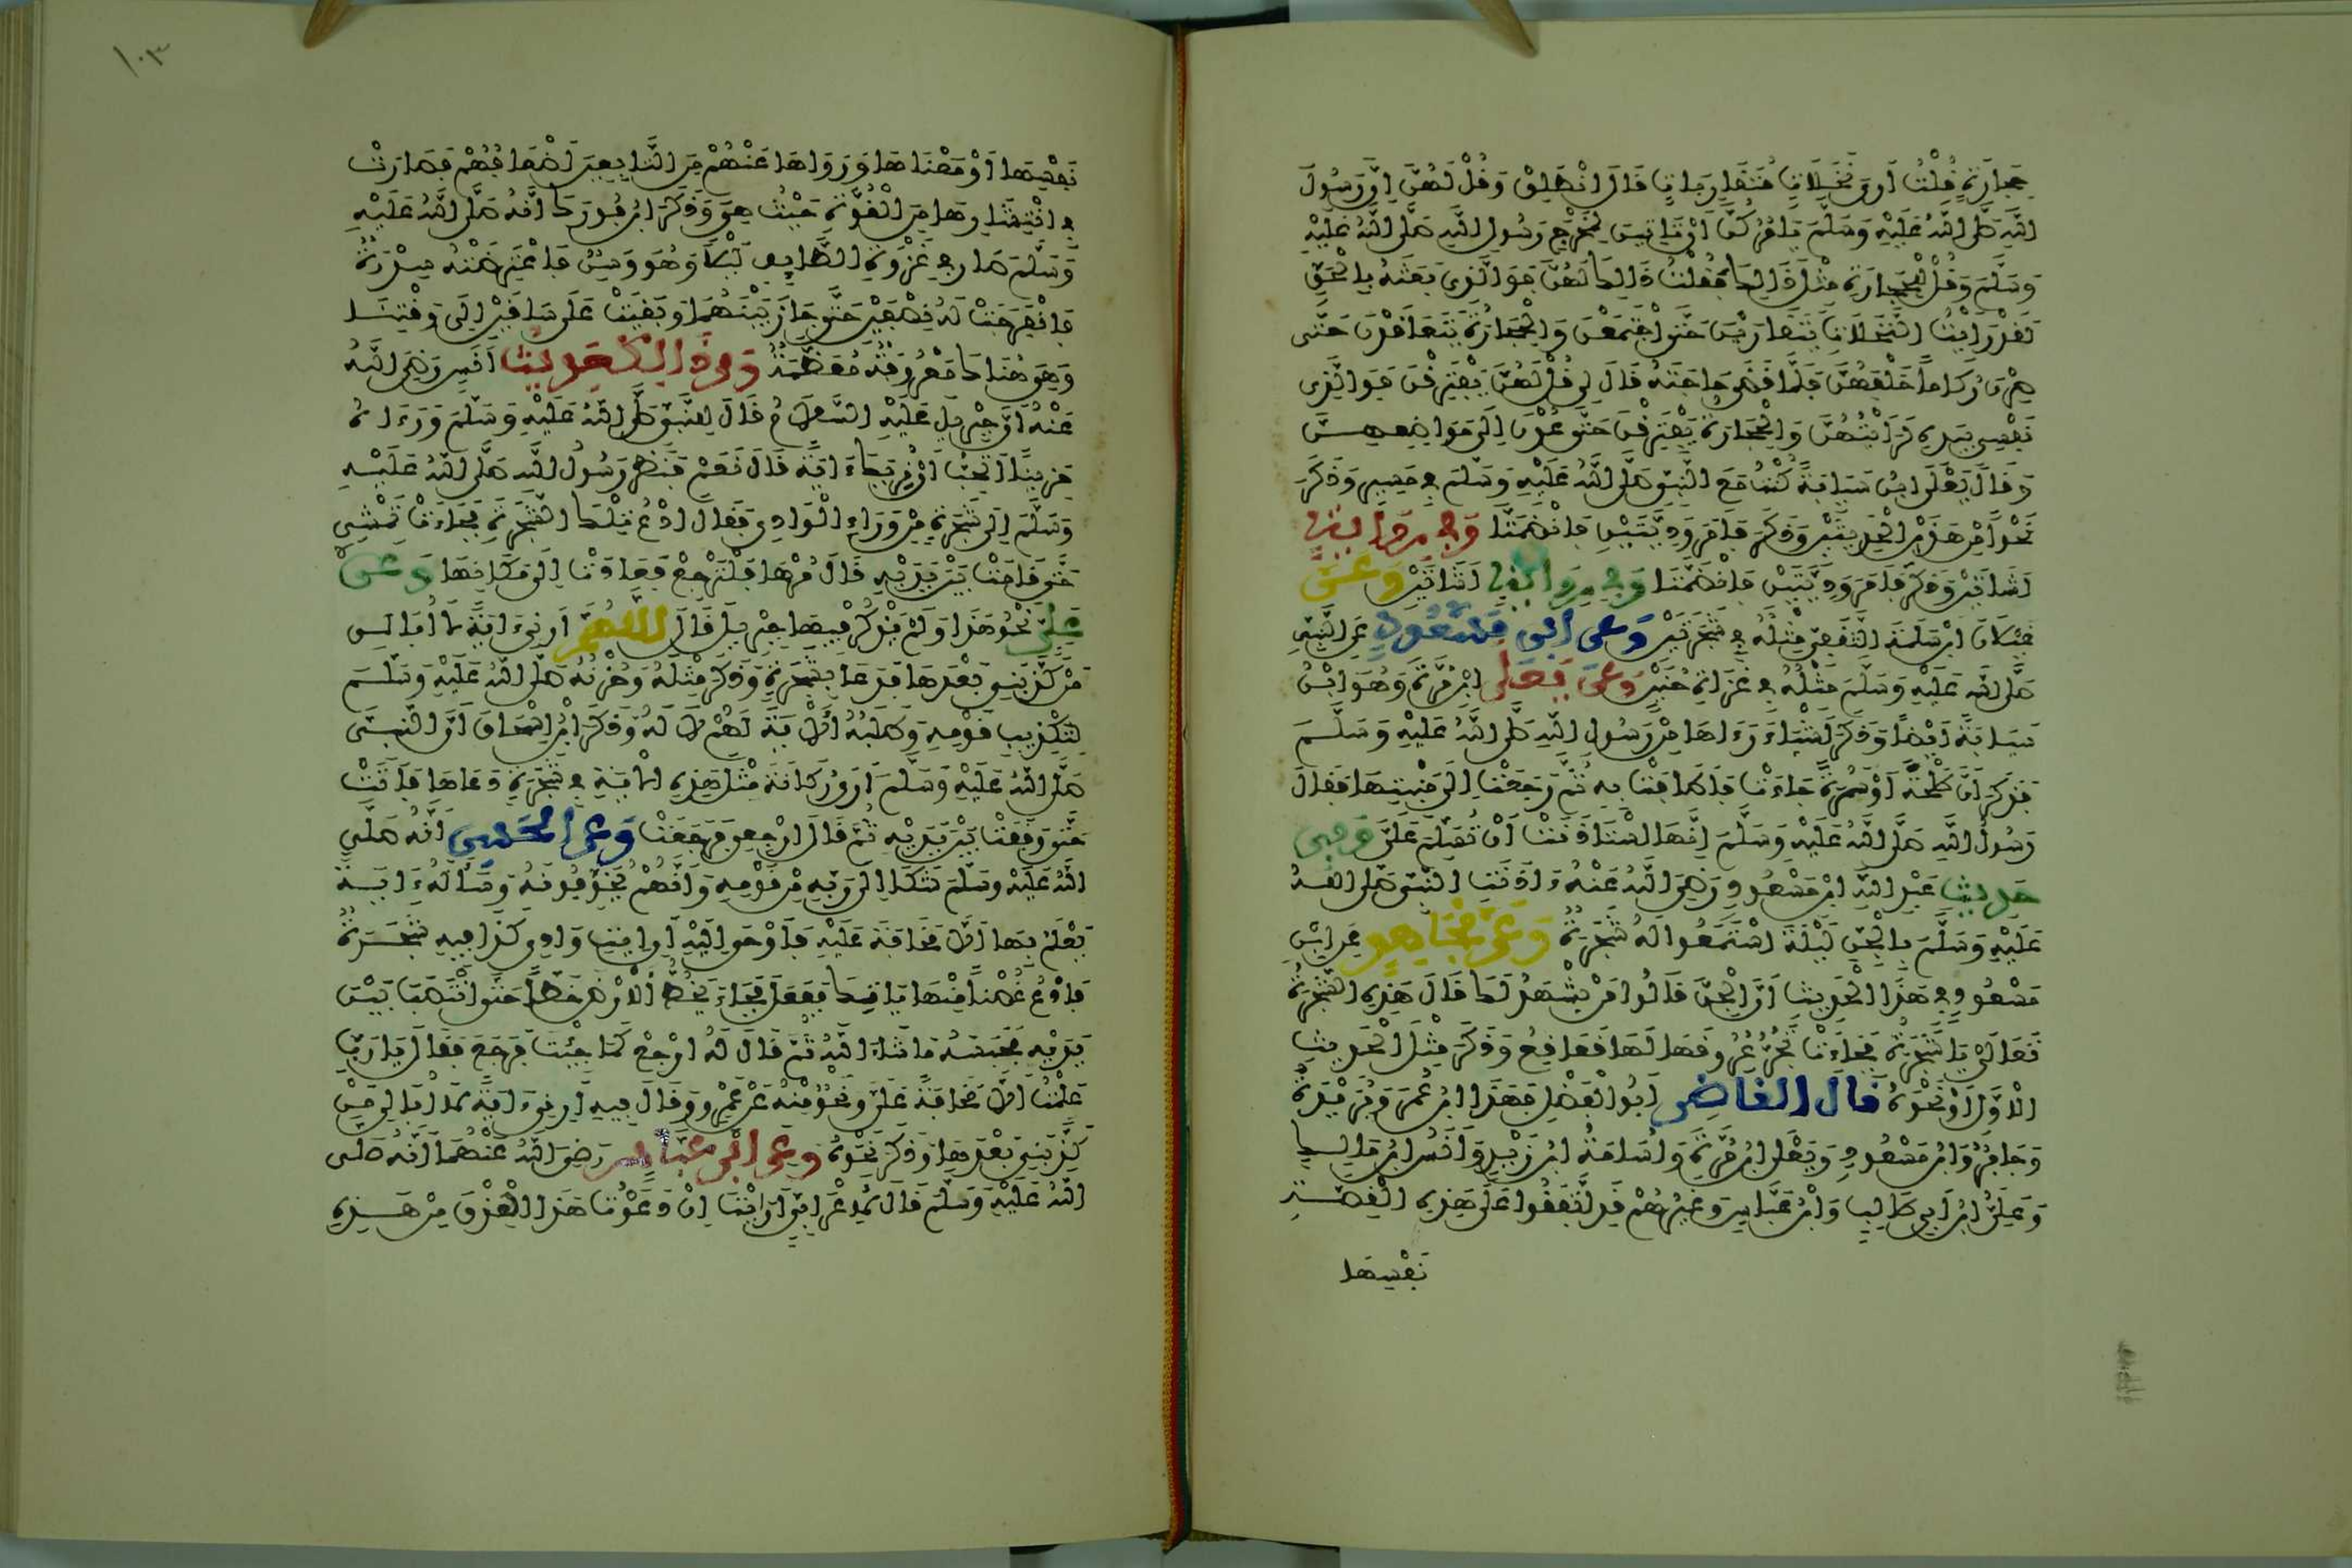 حِجَارَةٍ قُلْتُ أَرَى نَخَلَاتٍ مُتَقَارِبَاتٍ قَالَ انْطَلِقْ وَقُلْ لَهُنَّ إِنَّ رَسُولَ
اللَّهِ صَلَّى اللَّهُ عَلَيْهِ وَسَلَّمَ يَأْمُرُكُنَّ أَنْ تَأْتِينَ لِمَخْرَجِ رَسُولِ اللَّهِ صَلَّى اللَّهُ عَلَيْهِ
وَسَلَّمَ وَقُلْ لِلْحِجَارَةِ مِثْلَ ذَلِكَ فَقُلْتُ ذَلِكَ لَهُنَّ فَوَالَّذِي بَعَثَهُ بِالْحَقِّ
لَقَدْ رَأَيْتُ النَّخَلَاتِ يَتَقَارَبْنَ حَتَّى اجْتَمَعْنَ وَالْحِجَارَةَ يَتَعَاقَدْنَ حَتَّى
صِرْنَ رُكَامًا خَلْفَهُنَّ فَلَمَّا قَضَى حَاجَتَهُ قَالَ لِي قُلْ لَهُنَّ يَفْتَرِقْنَ فَوَالَّذِي
نَفْسِي بِيَدِهِ لَرَأَيْتُهُنَّ وَالْحِجَارَةَ يَفْتَرِقْنَ حَتَّى عُدْنَ إِلَى مَوَاضِعِهِنَّ
وَقَالَ يَعْلَى ابْنُ سَيَابَةَ كُنْتُ مَعَ النَّبِيِّ صَلَّى اللَّهُ عَلَيْهِ وَسَلَّمَ فِي مَسِيرٍ وَذَكَرَ
نَحْوًا مِنْ هَذَيْنِ الْحَدِيثَيْنِ وَذَكَرَ فَأَمَرَ وَدِيَّتَيْنِ فَانْضَمَّتَا وَفِي رِوَايَةٍ
أَشَاءَتَيْنِ وَذَكَرَ فَأَمَرَ وَدِيَّتَيْنِ فَانْضَمَّتَا وَفِي رِوَايَةٍ أَشَاءَتَيْنِ وَعَنْ
غَيْلَانَ ابْنِ سَلَمَةَ الثَّقَفِيِّ مِثْلُهُ فِي شَجَرَتَيْنِ وَعَنِ ابْنِ مَسْعُودٍ عَنِ النَّبِيِّ
صَلَّى اللَّهُ عَلَيْهِ وَسَلَّمَ مِثْلُهُ فِي غَزَاةِ حُنَيْنٍ وَعَنْ يَعْلَى ابْنِ مُرَّةَ وَهُوَ ابْنُ
سَيَابَةَ أَيْضًا وَذَكَرَ أَشْيَاءَ رَءَاهَا مِنْ رَسُولِ اللَّهِ صَلَّى اللَّهُ عَلَيْهِ وَسَلَّمَ
فَذَكَرَ أَنَّ طَلْحَةً أَوْ سَمُرَةً جَاءَتْ فَأَطَافَتْ بِهِ ثُمَّ رَجَعَتْ إِلَى مَنْبِتِهَا فَقَالَ
رَسُولُ اللَّهِ صَلَّى اللَّهُ عَلَيْهِ وَسَلَّمَ إِنَّهَا اسْتَأْذَنَتْ أَنْ تُسَلِّمَ عَلَيَّ وَفِي
حَدِيثِ عَبْدِ اللَّهِ ابْنِ مَسْعُودٍ رَضِيَ اللَّهُ عَنْهُ ءَاذَنَتِ النَّبِيَّ صَلَّى اللَّهُ
عَلَيْهِ وَسَلَّمَ بِالْجِنِّ لَيْلَةَ اسْتَمَعُوا لَهُ شَجَرَةٌ وَعَنْ مُجَاهِدٍ عَنِ ابْنِ
مَسْعُودٍ فِي هَذَا الْحَدِيثِ أَنَّ الْجِنَّ قَالُوا مَنْ يَشْهَدُ لَكَ قَالَ هَذِهِ الشَّجَرَةُ
تَعَالَيْ يَا شَجَرَةُ فَجَاءَتْ تَجُرُّ عُرُوقَهَا لَهَا قَعَاقِعُ وَذَكَرَ مِثْلَ الْحَدِيثِ
الْأَوَّلِ أَوْ نَحْوَهُ قَالَ الْقَاضِي أَبُو الْفَضْلِ فَهَذَا ابْنُ عُمَرَ وَبُرَيْدَةُ
وَجَابِرٌ وَابْنُ مَسْعُودٍ وَيَعْلَى ابْنُ مُرَّةَ وَأُسَامَةُ ابْنُ زَيْدٍ وَأَنَسُ ابْنُ مَالِكٍ
وَعَلِيُّ ابْنُ أَبِي طَالِبٍ وَابْنُ عَبَّاسٍ وَغَيْرُهُمْ قَدِ اتَّفَقُوا عَلَى هَذِهِ الْقِصَّةِ
نَفْسِهَا
١٠٣
نَفْسِهَا أَوْ مَعْنَاهَا وَرَوَاهَا عَنْهُمْ مِنَ التَّابِعِينَ أَضْعَافُهُمْ فَصَارَتْ
فِي انْتِشَارِهَا مِنَ الْقُوَّةِ حَيْثُ هِيَ وَذَكَرَ ابْنُ فُورَكَ أَنَّهُ صَلَّى اللَّهُ عَلَيْهِ
وَسَلَّمَ سَارَ فِي غَزْوَةِ الطَّائِفِ لَيْلًا وَهُوَ وَسِنٌ فَاعْتَرَضَتْهُ سِدْرَةٌ
فَانْفَرَجَتْ لَهُ نِصْفَيْنِ حَتَّى جَازَ بَيْنَهُمَا وَبَقِيَتْ عَلَى سَاقَيْنِ إِلَى وَقْتِنَا
وَهِيَ هُنَاكَ مَعْرُوفَةٌ مُعَظَّمَةٌ وَمِنْ ذَلِكَ حَدِيثُ أَنَسٍ رَضِيَ اللَّهُ
عَنْهُ أَنَّ جِبْرِيلَ عَلَيْهِ السَّلَامُ قَالَ لِلنَّبِيِّ صَلَّى اللَّهُ عَلَيْهِ وَسَلَّمَ وَرَءَاهُ
حَزِينًا أَتُحِبُّ أَنْ أُرِيَكَ ءَايَةً قَالَ نَعَمْ فَنَظَرَ رَسُولُ اللَّهِ صَلَّى اللَّهُ عَلَيْهِ
وَسَلَّمَ إِلَى شَجَرَةٍ مِنْ وَرَاءِ الْوَادِي فَقَالَ ادْعُ تِلْكَ الشَّجَرَةَ فَجَاءَتْ تَمْشِي
حَتَّى قَامَتْ بَيْنَ يَدَيْهِ قَالَ مُرْهَا فَلْتَرْجِعْ فَعَادَتْ إِلَى مَكَانِهَا وَعَنْ
عَلِيٍّ نَحْوُ هَذَا وَلَمْ يَذْكُرْ فِيهَا جِبْرِيلَ قَالَ اللَّهُمَّ أَرِنِي ءَايَةً لَا أُبَالِي
مَنْ كَذَّبَنِي بَعْدَهَا فَدَعَا بِشَجَرَةٍ وَذَكَرَ مِثْلَهُ وَحُزْنُهُ صَلَّى اللَّهُ عَلَيْهِ وَسَلَّمَ
لِتَكْذِيبِ قَوْمِهِ وَطَلَبُهُ الْآيَةَ لَهُمْ لَا لَهُ وَذَكَرَ ابْنُ إِسْحَاقَ أَنَّ النَّبِيَّ
صَلَّى اللَّهُ عَلَيْهِ وَسَلَّمَ أَرَى رُكَانَةَ مِثْلَ هَذِهِ الْآيَةِ فِي شَجَرَةٍ دَعَاهَا فَأَتَتْ
حَتَّى وَقَفَتْ بَيْنَ يَدَيْهِ ثُمَّ قَالَ ارْجِعِي فَرَجَعَتْ وَعَنِ الْحَسَنِ أَنَّهُ صَلَّى
اللَّهُ عَلَيْهِ وَسَلَّمَ شَكَا إِلَى رَبِّهِ مِنْ قَوْمِهِ وَأَنَّهُمْ يُخَوِّفُونَهُ وَسَأَلَهُ ءَايَةً
يَعْلَمُ بِهَا أَلَّا مَخَافَةَ عَلَيْهِ فَأَوْحَى إِلَيْهِ أَنِ ايتِ وَادِيَ كَذَا فِيهِ شَجَرَةٌ
فَادْعُ غُصْنًا مِنْهَا يَأْتِيكَ فَفَعَلَ فَجَاءَ يَخُطُّ الْأَرْضَ خَطًّا حَتَّى انْتَصَبَ بَيْنَ
يَدَيْهِ فَحَبَسَهُ مَا شَاءَ اللَّهُ ثُمَّ قَالَ لَهُ ارْجِعْ كَمَا جِئْتَ فَرَجَعَ فَقَالَ يَا رَبِّ
عَلِمْتُ أَلَّا مَخَافَةَ عَلَيَّ وَنَحْوٌ مِنْهُ عَنْ عُمَرَ وَقَالَ فِيهِ أَرِنِي ءَايَةً لَا أُبَالِي مَنْ
كَذَّبَنِي بَعْدَهَا وَذَكَرَ نَحْوَهُ وَعَنِ ابْنِ عَبَّاسٍ رَضِيَ اللَّهُ عَنْهُمَا أَنَّهُ صَلَّى
اللَّهُ عَلَيْهِ وَسَلَّمَ قَالَ لِأَعْرَابِيٍّ أَرَأَيْتَ إِنْ دَعَوْتُ هَذَا الْعِذْقَ مِنْ هَذِهِ